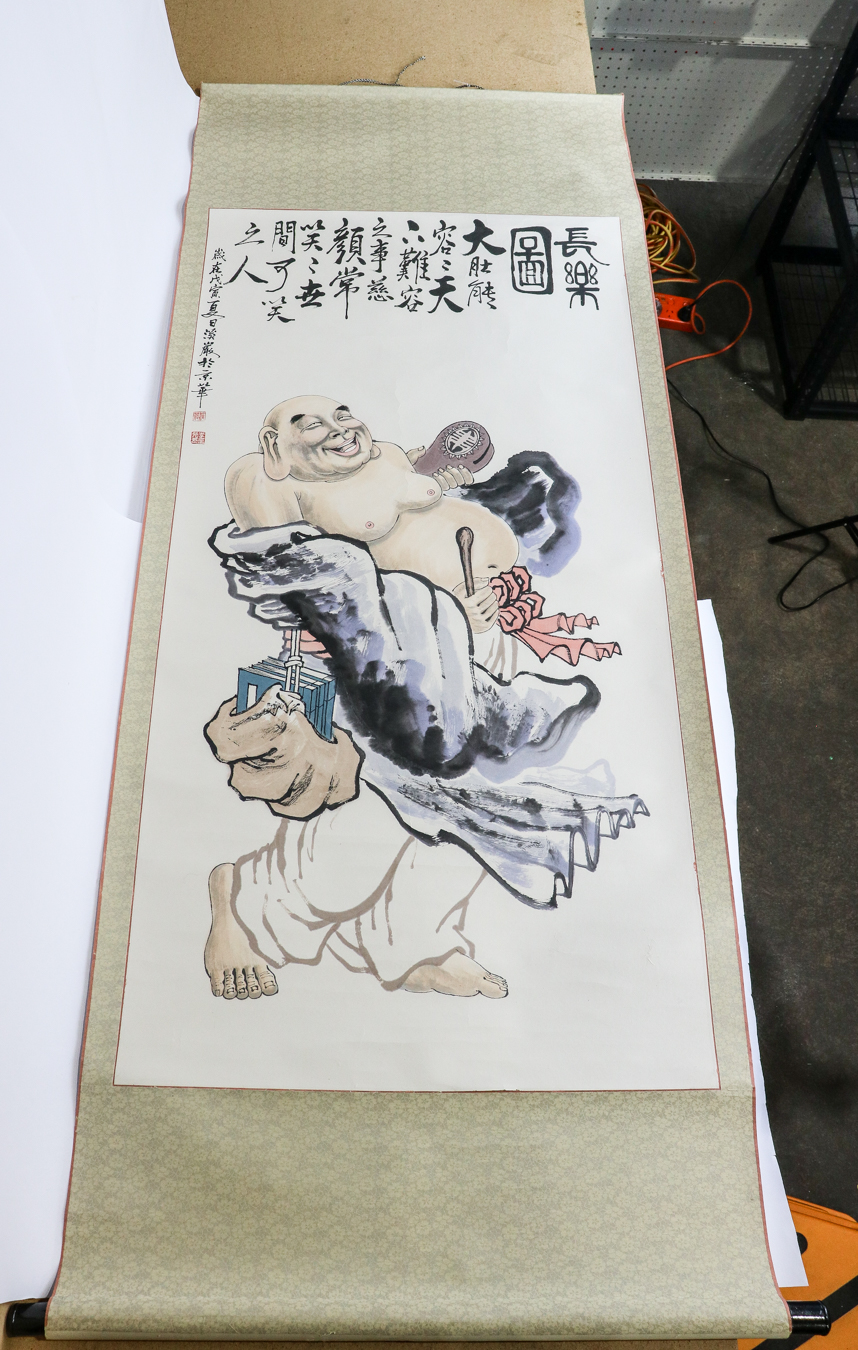 長樂
圖
大肚能
容〻天
下難容
之事慈
顏常
笑〻世
間可笑
之人
歲在戊寅夏日巖於京華